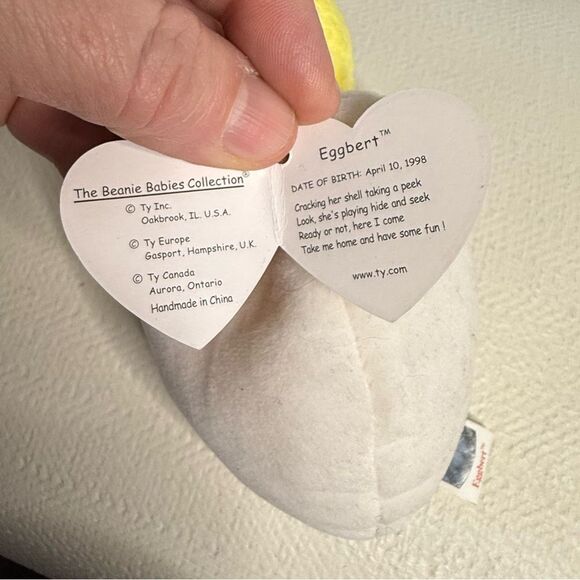 The Beanie Babies Collection®
© Ty Inc.
Oakbrook, IL. U.S.A.
© Ty Europe
Gasport, Hampshire, U.K.
© Ty Canada
Aurora, Ontario
Handmade in China
Eggbert™
DATE OF BIRTH: April 10, 1998
Cracking her shell taking a peek
Look, she's playing hide and seek
Ready or not, here I come
Take me home and have some fun !
www.ty.com
Eggbert™